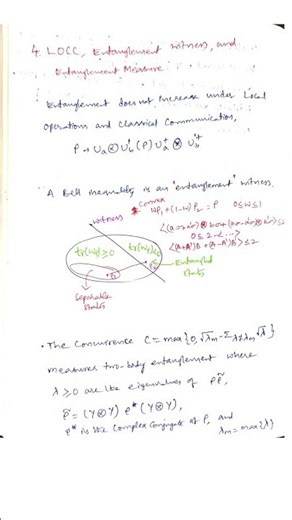 4. LOCC, Entanglement witness, and
Entanglement Measure.
Entanglement does not increase under Local
Operations and Classical Communication,
ρ → Ua ⊗ Ub (ρ) Ua† ⊗ Ub†
A Bell inequality is an "entanglement" witness.
* Convex
witness
Wρ1+(1-W)ρ2 = ρ 0≤W≤1
0≤2-<...>
<(A+A')B+(A-A')B'>≤2
tr(Wρ)≥0
Entangled
States
Separable
States
• The Concurrence C = max{0, √λm - Σλ≠λm √λ}
measures two-body entanglement where
λ ≥ 0 are the eigenvalues of ρρ̃,
ρ̃ = (Y⊗Y) ρ* (Y⊗Y),
ρ* is the complex conjugate of ρ, and
λm = max{λ}